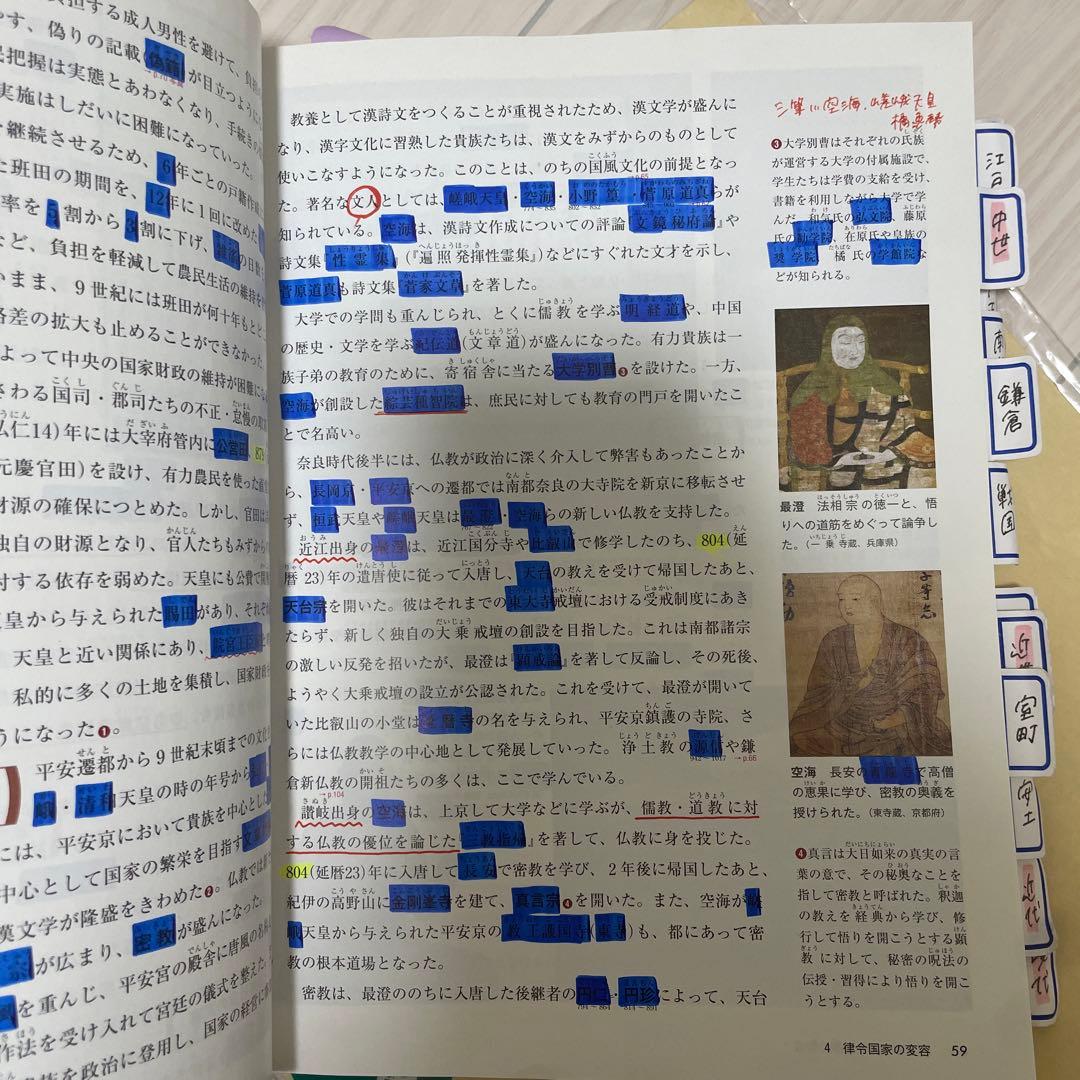 担する成人男性を避けて、負担
す、偽りの記載(偽籍)が目立つように
民把握は実態とあわなくなり、手続きの
実施はしだいに困難になっていった。
継続させるため、6年ごとの戸籍作成
た班田の期間を、12年に1回に改めた
率を5割から3割に下げ、雑徭の日数
など、負担を軽減して農民生活の維持を
いまま、9世紀には班田が何十年もと
格差の拡大も止めることができなかった
よって中央の国家財政の維持が困難に
さわる国司・郡司たちの不正・怠慢の
弘仁14)年には大宰府管内に公営田、879
元慶官田)を設け、有力農民を使った直営
財源の確保につとめた。しかし、官田は
独自の財源となり、官人たちもみずからの
対する依存を弱めた。天皇にも公費で開
皇から与えられた賜田があり、それぞれ
天皇と近い関係にあり、院宮王臣家
私的に多くの土地を集積し、国家財政
うになった❶。
平安遷都から9世紀末頃までの文化
峨・清和天皇の時の年号から
には、平安京において貴族を中心とした
中心として国家の繁栄を目指す文章
漢文学が隆盛をきわめた❷。仏教では
が広まり、密教が盛んになった。
を重んじ、平安宮の殿舎に唐風の名称
作法を受け入れて宮廷の儀式を整えた。
族を政治に登用し、国家の経営に
教養として漢詩文をつくることが重視されたため、漢文学が盛んに
なり、漢字文化に習熟した貴族たちは、漢文をみずからのものとして
使いこなすようになった。このことは、のちの国風文化の前提となっ
た。著名な文人としては、嵯峨天皇・空海・小野篁・菅原道真らが
知られている。空海は、漢詩文作成についての評論『文鏡秘府論』や
詩文集『性霊集』(『遍照発揮性霊集』)などにすぐれた文才を示し、
菅原道真も詩文集『菅家文草』を著した。
大学での学問も重んじられ、とくに儒教を学ぶ明経道や、中国
の歴史・文学を学ぶ紀伝道(文章道)が盛んになった。有力貴族は一
族子弟の教育のために、寄宿舎に当たる大学別曹❸を設けた。一方、
空海が創設した綜芸種智院は、庶民に対しても教育の門戸を開いたこ
とで名高い。
奈良時代後半には、仏教が政治に深く介入して弊害もあったことか
ら、長岡京・平安京への遷都では南都奈良の大寺院を新京に移転させ
ず、桓武天皇や嵯峨天皇は最澄・空海らの新しい仏教を支持した。
近江出身の最澄は、近江国分寺や比叡山で修学したのち、804(延
暦23)年の遣唐使に従って入唐し、天台の教えを受けて帰国したあと、
天台宗を開いた。彼はそれまでの東大寺戒壇における受戒制度にあき
たらず、新しく独自の大乗戒壇の創設を目指した。これは南都諸宗
の激しい反発を招いたが、最澄は『顕戒論』を著して反論し、その死後、
ようやく大乗戒壇の設立が公認された。これを受けて、最澄が開いて
いた比叡山の小堂は延暦寺の名を与えられ、平安京鎮護の寺院、さ
らには仏教教学の中心地として発展していった。浄土教の源信や鎌
倉新仏教の開祖たちの多くは、ここで学んでいる。
讃岐出身の空海は、上京して大学などに学ぶが、儒教・道教に対
する仏教の優位を論じた『三教指帰』を著して、仏教に身を投じた。
804(延暦23)年に入唐して長安で密教を学び、2年後に帰国したあと、
紀伊の高野山に金剛峯寺を建て、真言宗❹を開いた。また、空海が嵯
峨天皇から与えられた平安京の教王護国寺(東寺)も、都にあって密
教の根本道場となった。
密教は、最澄ののちに入唐した後継者の円仁・円珍によって、天台
三筆は空海、嵯峨天皇
橘逸勢
❸大学別曹はそれぞれの氏族
が運営する大学の付属施設で、
学生たちは学費の支給を受け、
書籍を利用しながら大学で学
んだ。和気氏の弘文院、藤原
氏の勧学院、在原氏や皇族の
奨学院、橘氏の学館院な
どが知られる。
最澄 法相宗の徳一と、悟
りへの道筋をめぐって論争し
た。(一乗寺蔵、兵庫県)
空海 長安の青龍寺で高僧
の恵果に学び、密教の奥義を
授けられた。(東寺蔵、京都府)
❹真言は大日如来の真実の言
葉の意で、その秘奥なことを
指して密教と呼ばれた。釈迦
の教えを経典から学び、修
行して悟りを開こうとする顕
教に対して、秘密の呪法の
伝授・習得により悟りを開こ
うとする。
4 律令国家の変容 59
江戸
中世
南
鎌倉
戦国
近
室町
近代